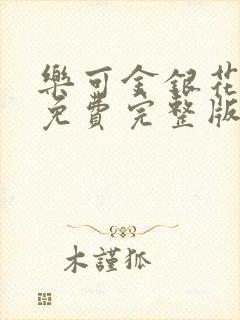 樂可金銀花
免費完整版
木謹狐